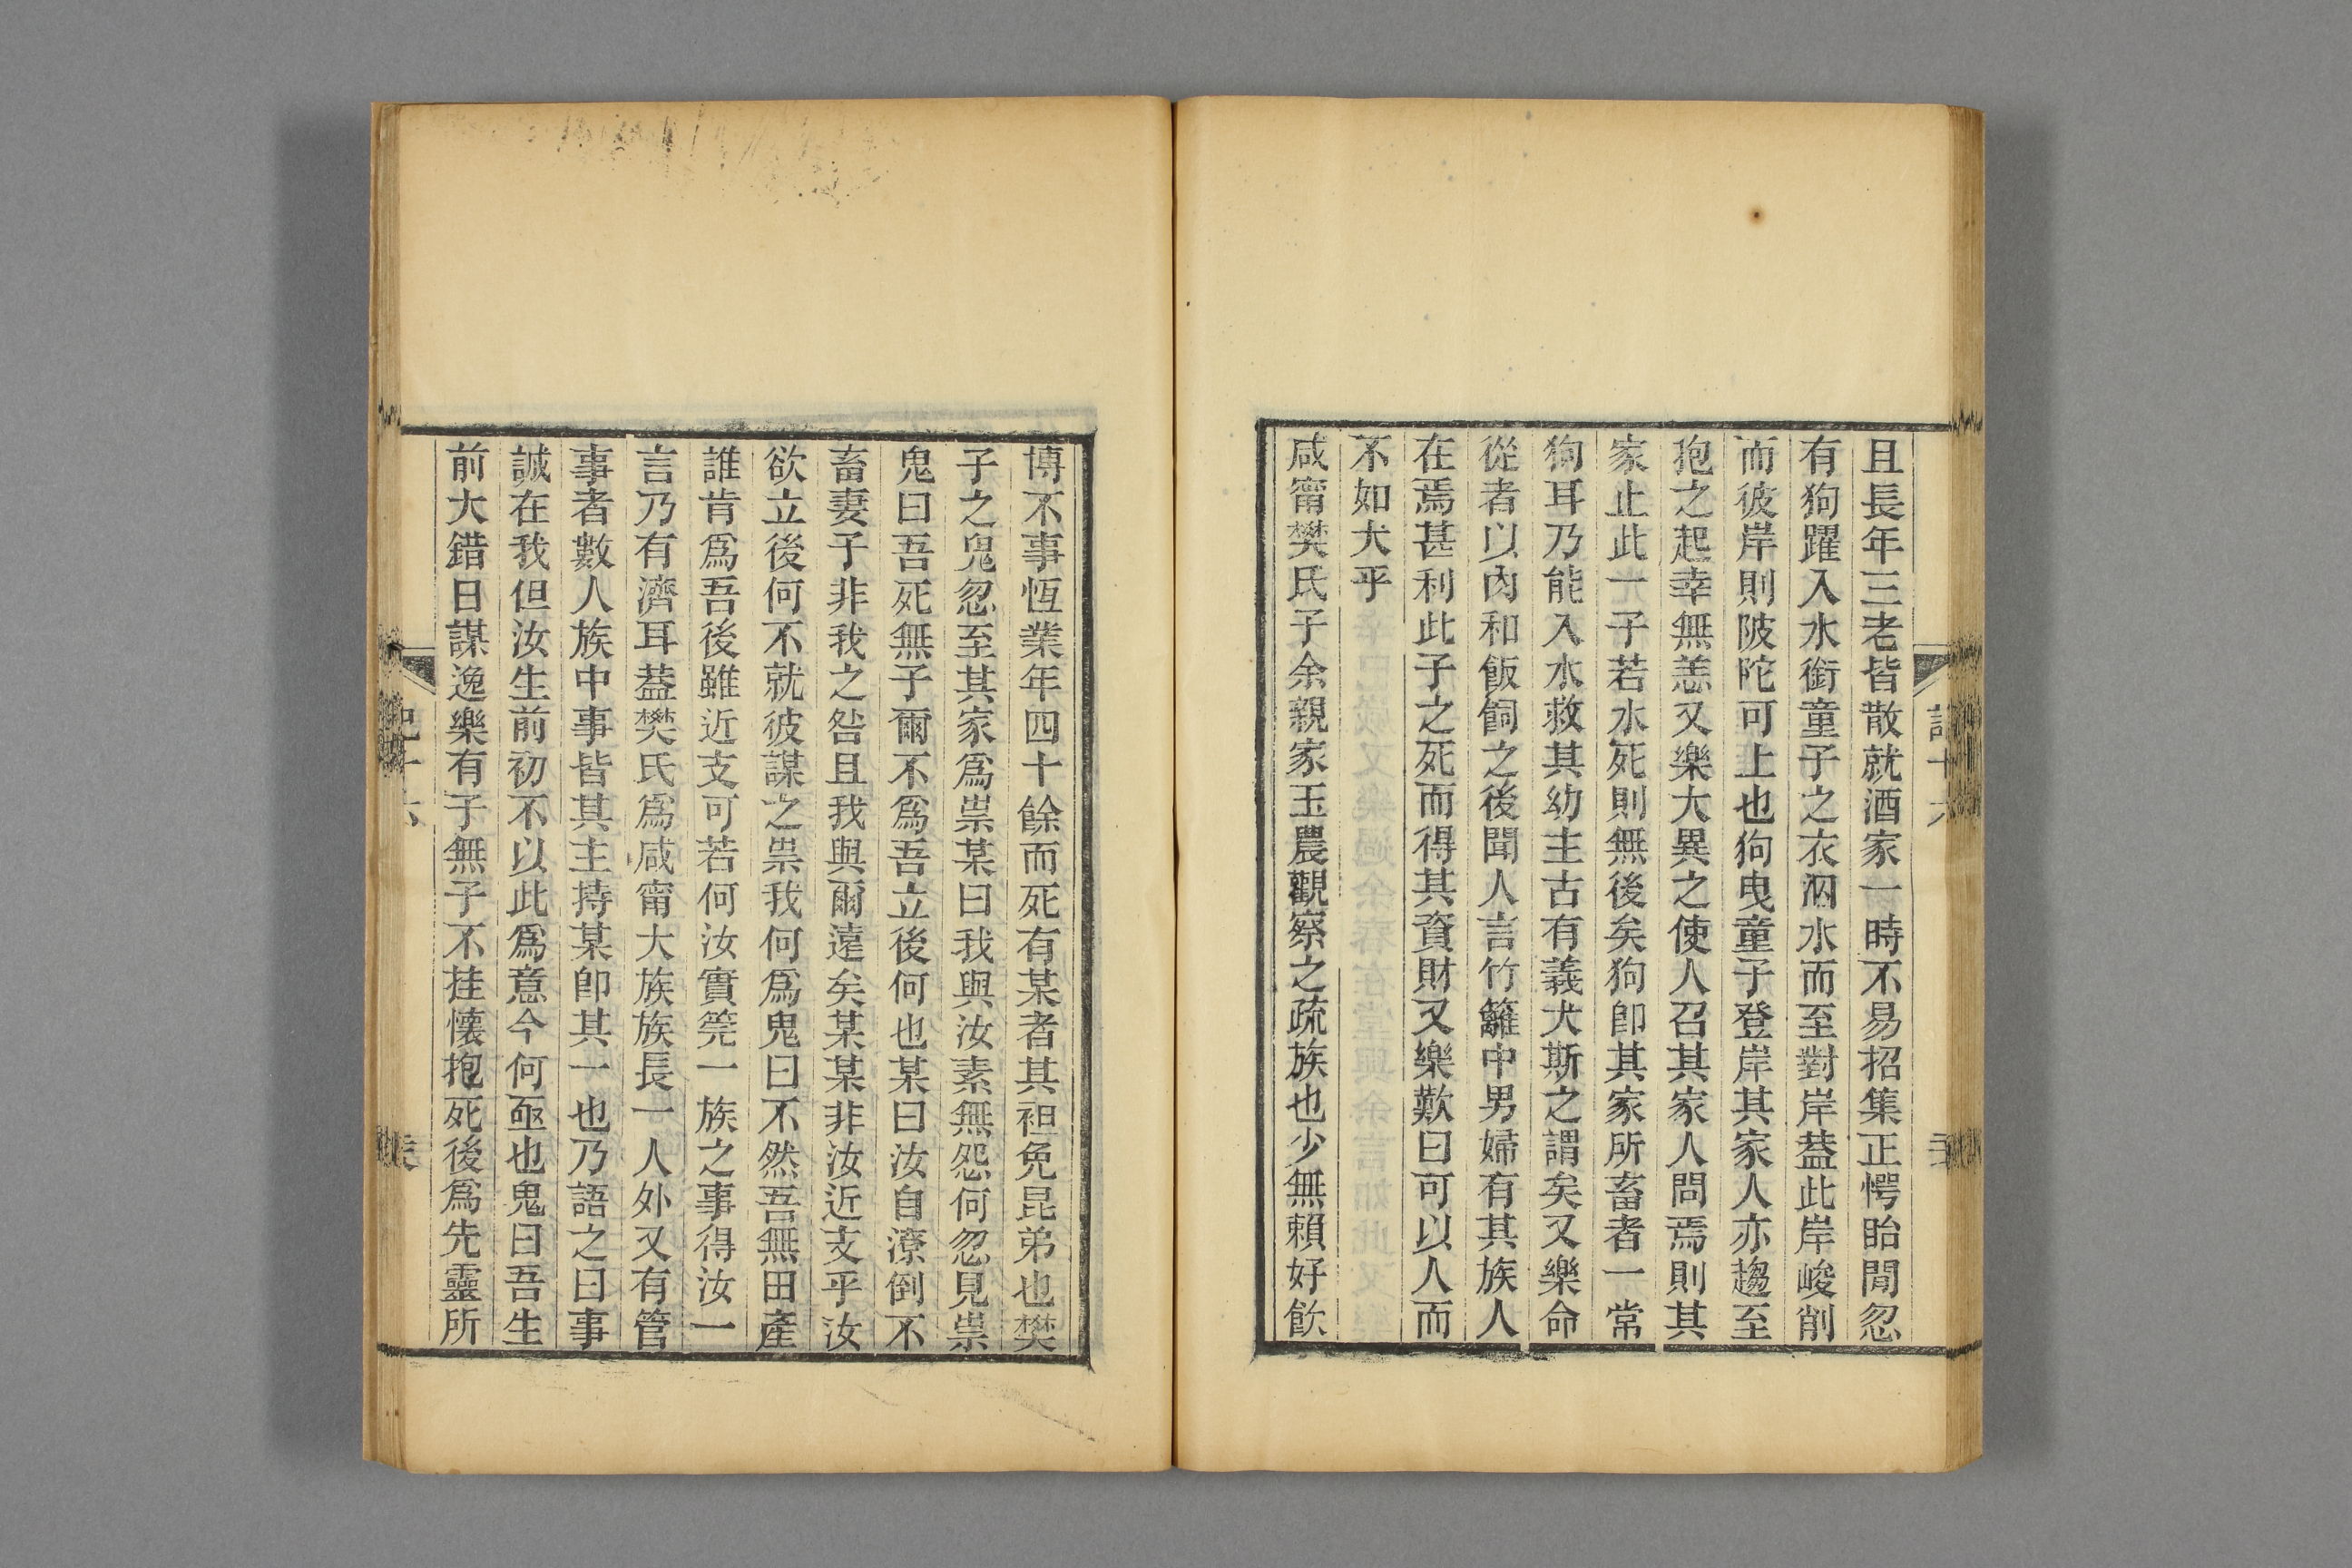 且長年三老皆散就酒家一時不易招集正愕眙閒忽
有狗躍入水銜童子之衣泅水而至對岸葢此岸峻削
而彼岸則陂陀可上也狗曳童子登岸其家人亦趨至
抱之起幸無恙又樂大異之使人召其家人問焉則其
家止此一子若水死則無後矣狗卽其家所畜者一常
狗耳乃能入水救其幼主古有義犬斯之謂矣又樂命
從者以肉和飯飼之後聞人言竹籬中男婦有其族人
在焉甚利此子之死而得其資財又樂歎曰可以人而
不如犬乎
咸甯樊氏子余親家玉農觀察之疏族也少無賴好飮
博不事恆業年四十餘而死有某者其袒免昆弟也樊
子之鬼忽至其家爲祟某曰我與汝素無怨何忽見祟
鬼曰吾死無子爾不爲吾立後何也某曰汝自潦倒不
畜妻子非我之咎且我與爾遠矣某某非汝近支乎汝
欲立後何不就彼謀之祟我何爲鬼曰不然吾無田產
誰肯爲吾後雖近支可若何汝實筦一族之事得汝一
言乃有濟耳葢樊氏爲咸甯大族族長一人外又有管
事者數人族中事皆其主持某卽其一也乃語之曰事
誠在我但汝生前初不以此爲意今何亟也鬼曰吾生
前大錯日謀逸樂有子無子不挂懷抱死後爲先靈所